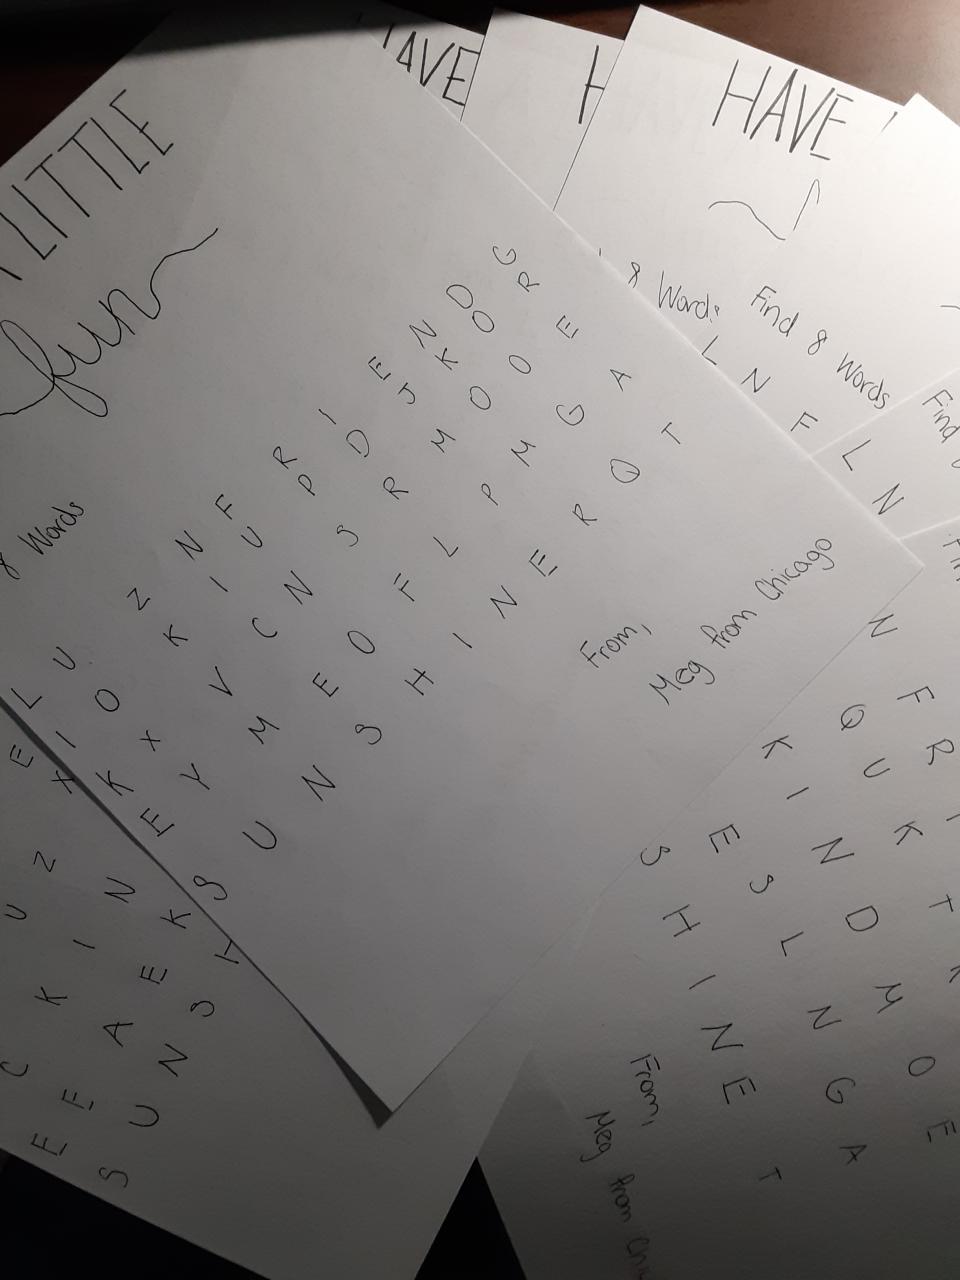 LITTLE
fun
8 Words
L U Z N F R I E N D G
I O K I U P D J K O R
K X V C N S R M O O E
E Y M E O F L P M G A
S U N S H I N E R Q T
From,
Meg from Chicago
AVE
H
HAVE
8 Words
L N F
Find 8 Words
L N
Find
N F R I
Q U K T
K I N D M O E
E S L N G A
S H I N E T
From,
Meg from Chi
E
U Z X
C K I N
E E A E K
S U N S H